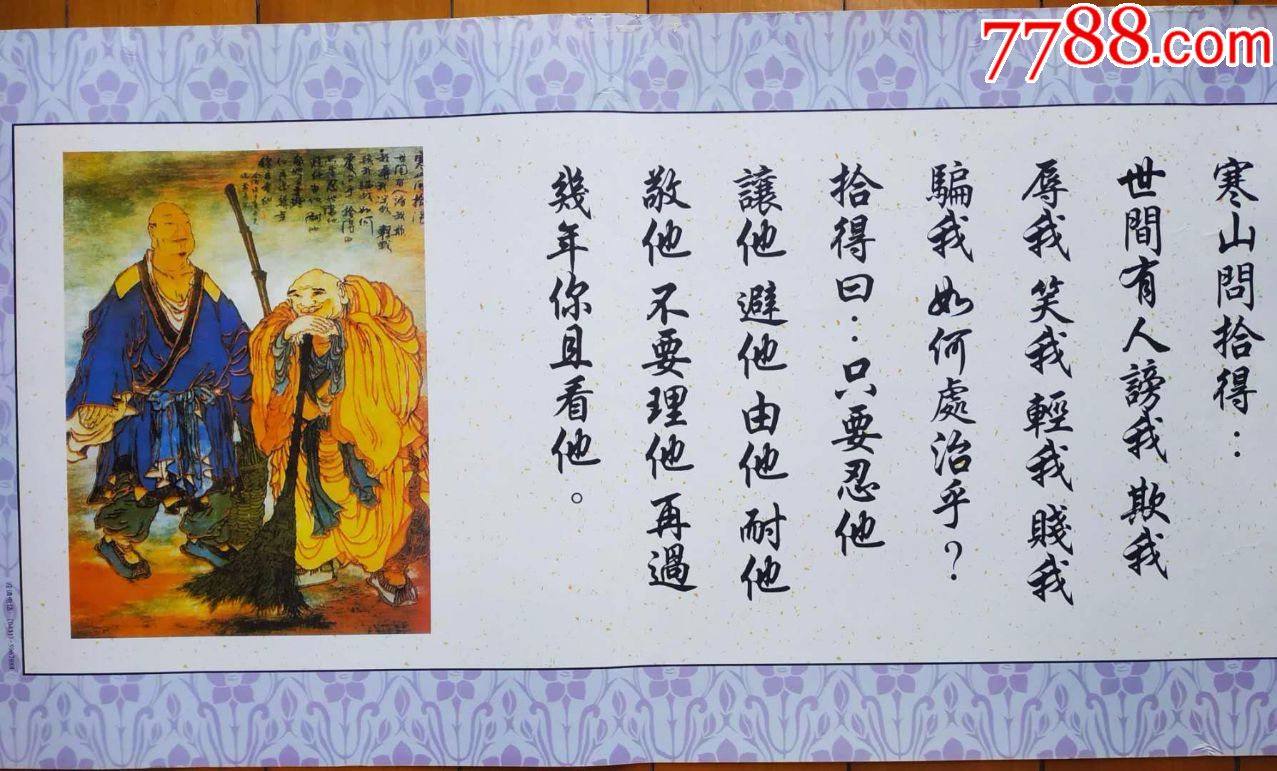 7788.com
寒山問拾得:
世間有人謗我 欺我
辱我 笑我 輕我 賤我
騙我 如何處治乎?
拾得曰:只要忍他
讓他 避他 由他 耐他
敬他 不要理他 再過
幾年你且看他。